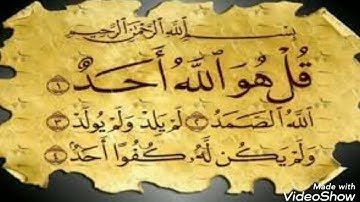 بِسْمِ ٱللَّهِ ٱلرَّحْمَٰنِ ٱلرَّحِيمِ
قُلْ هُوَ ٱللَّهُ أَحَدٌ ١
ٱللَّهُ ٱلصَّمَدُ ٢ لَمْ يَلِدْ وَلَمْ يُولَدْ ٣
وَلَمْ يَكُن لَّهُۥ كُفُوًا أَحَدٌۢ ٤
Made with
VideoShow